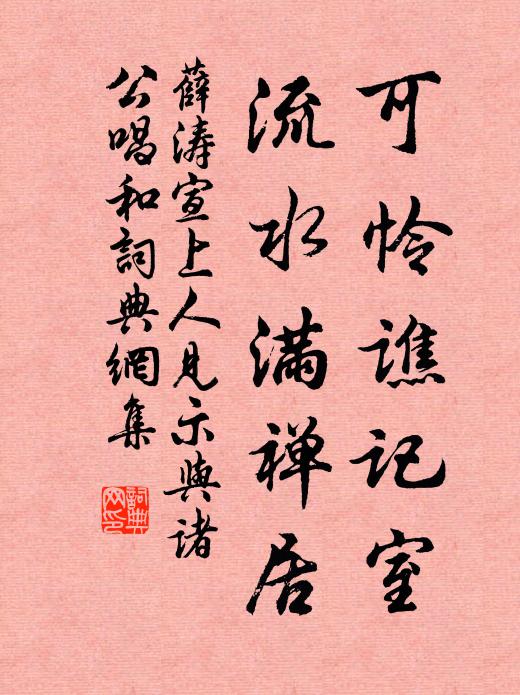 可怜谯记室
流水满禅居
薛涛宣上人见示与诸
公唱和词典網集
詞典網印